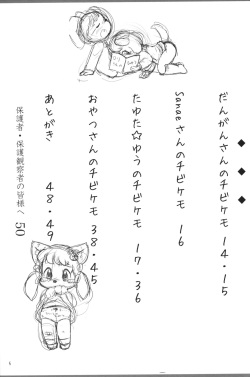 だんがんさんのチビケモ 14・15
Sanaeさんのチビケモ 16
たゆた☆ゆうのチビケモ 17・36
おやつさんのチビケモ 38・45
あとがき 48・49
保護者・保護観察者の皆様へ 50